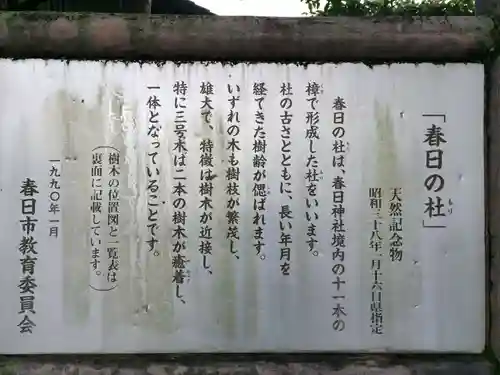 「春日の社」
もり
天然記念物
昭和三十八年一月十六日県指定
春日の社は、春日神社境内の十一本の
樟で形成した社をいいます。
社の古さとともに、長い年月を
経てきた樹齢が偲ばれます。
いずれの木も樹枝が繁茂し、
雄大で、特徴は樹木が近接し、
特に三号木は二本の樹木が癒着し、
一体となっていることです。
（樹木の位置図と一覧表は
裏面に記載しています。）
一九九〇年一月
春日市教育委員会